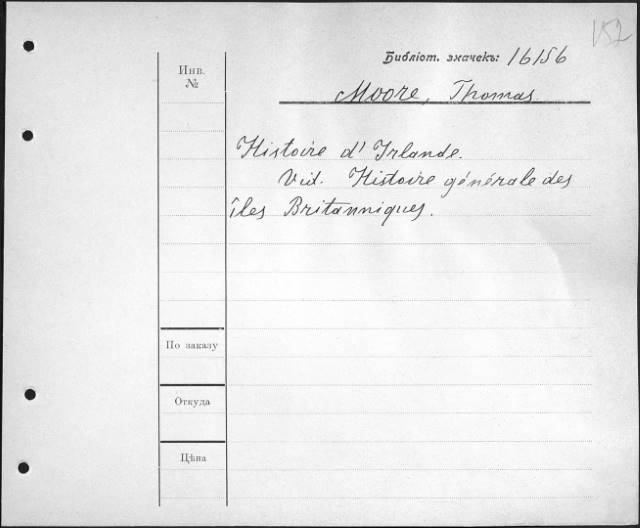 152
Библіот. значекъ: 16156
Инв.
№
Moore, Thomas.
Histoire d'Irlande.
Vid. Histoire générale des
îles Britanniques.
По заказу
Откуда
Цѣна